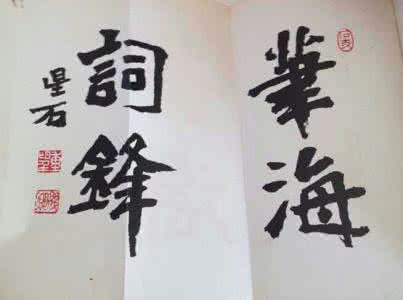 筆海
詞鋒
星石